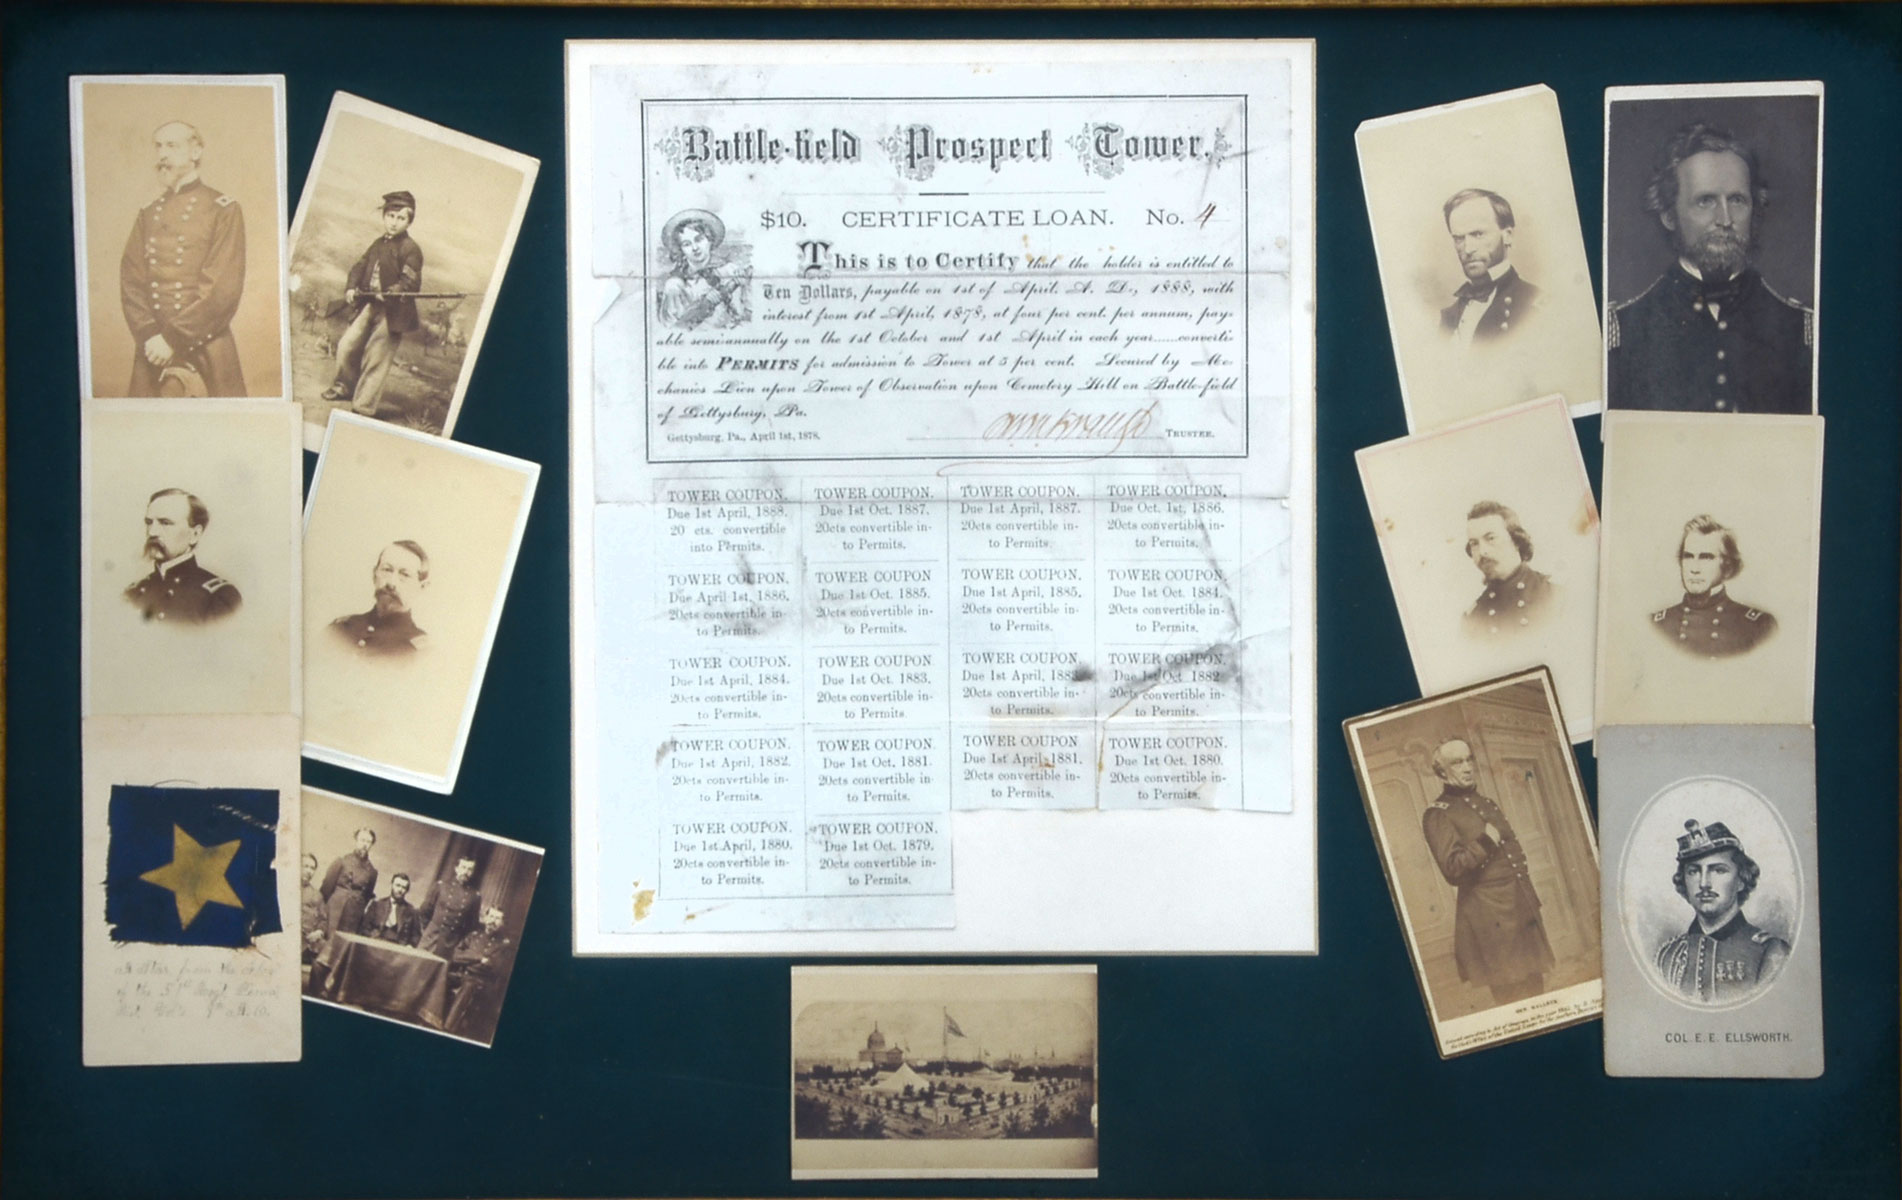 Battle-field Prospect Tower.
$10. CERTIFICATE LOAN. No. 4
This is to Certify that the holder is entitled to
Ten Dollars, payable on 1st of April. A. D., 1888, with
interest from 1st April, 1878, at four per cent. per annum, pay-
able semi-annually on the 1st October and 1st April in each year......converti-
ble into PERMITS for admission to Tower at 5 per cent. Secured by Me-
chanics Lien upon Tower of Observation upon Cemetery Hill on Battle-field
of Gettysburg, Pa.
Gettysburg, Pa., April 1st, 1878.
TRUSTEE.
TOWER COUPON.
Due 1st April, 1888.
20 cts. convertible
into Permits.
TOWER COUPON.
Due 1st Oct. 1887.
20cts convertible in-
to Permits.
TOWER COUPON.
Due 1st April, 1887.
20cts convertible in-
to Permits.
TOWER COUPON.
Due Oct. 1st, 1886.
20cts convertible in-
to Permits.
TOWER COUPON.
Due April 1st, 1886.
20cts convertible in-
to Permits.
TOWER COUPON
Due 1st Oct. 1885.
20cts convertible in-
to Permits.
TOWER COUPON.
Due 1st April, 1885.
20cts convertible in-
to Permits.
TOWER COUPON.
Due 1st Oct. 1884.
20cts convertible in-
to Permits.
TOWER COUPON.
Due 1st April, 1884.
20cts convertible in-
to Permits.
TOWER COUPON.
Due 1st Oct. 1883.
20cts convertible in-
to Permits.
TOWER COUPON.
Due 1st April, 1883
20cts convertible in-
to Permits.
TOWER COUPON.
Due 1st Oct. 1882
20cts convertible in-
to Permits.
TOWER COUPON.
Due 1st April, 1882.
20cts convertible in-
to Permits.
TOWER COUPON.
Due 1st Oct. 1881.
20cts convertible in-
to Permits.
TOWER COUPON
Due 1st April, 1881.
20cts convertible in-
to Permits.
TOWER COUPON.
Due 1st Oct. 1880.
20cts convertible in-
to Permits.
TOWER COUPON.
Due 1st April, 1880.
20cts convertible in-
to Permits.
TOWER COUPON.
Due 1st Oct. 1879.
20cts convertible in-
to Permits.
Star from the
of the 51st Regt.
COL. E. E. ELLSWORTH.